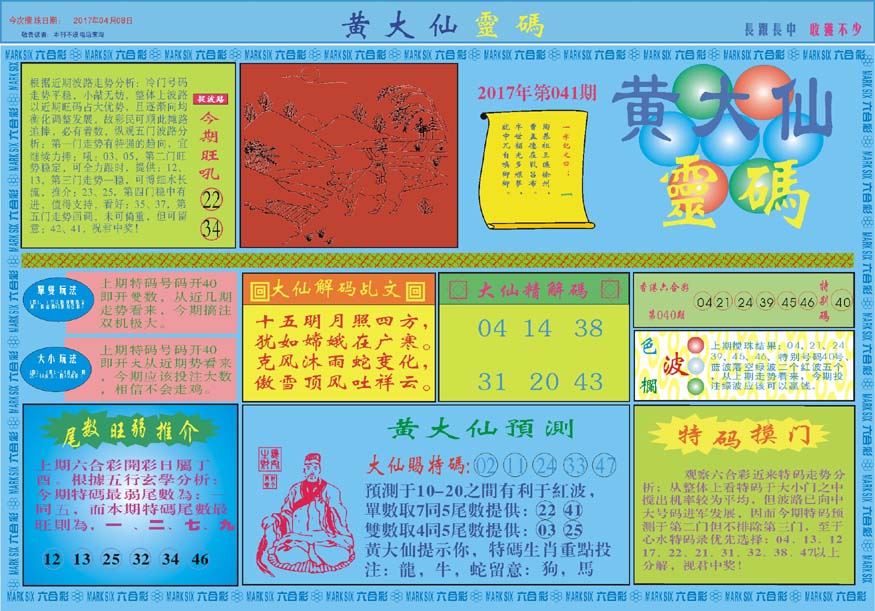 今次攪珠日期: 2017年04月08日
黃大仙靈碼
長跟長中 收獲不少
MARK SIX 六合彩
根据近期波路走势分析;冷门号码
走势平稳,小献无妨,整体上波路
以近期旺码占大优势,且逐渐向均
衡化调整发展,故彩民可顺此摊路
追捧,必有着数,纵观五门波路分
析:第一门走势有特强的趋向,宜
继续力捧;吼:03、05,第二门旺
势稳定,可全力跟时,提供:12、
13,第三门走势一稳,可博细水长
流,推介:23、25,第四门稳中有
进,值得支持,看好:35、37,第
五门走势西调,未可偏重,但可留
意:42、41,祝君中奖!
捉波路
今期旺吼
22
34
2017年第041期
一字记之曰:
黄大仙
靈碼
單雙玩法
上期特码号码开40
即开雙数,从近几期
走势看来,今期搞注
双机极大。
大小玩法
上期特码号码开40
即开大从近期势看来
,今期应该投注大数
,相信不会走鸡。
大仙解码乩文
十五明月照四方,
犹如嫦娥在广寒。
克风沐雨蛇变化,
傲雪顶风吐祥云。
大仙精解碼
04 14 38
31 20 43
香港六合彩
第040期
04 21 24 39 45 46
特别碼
40
色波欄
上期攪珠结果:04、21、24
39、45、46、特别号码40号、
蓝波落空绿波二个红波五个
,从上期走势看来,今期投
注绿波应该可以赢钱。
尾数旺弱推介
上期六合彩開彩日屬丁
酉。根據五行玄學分析:
今期特碼最弱尾數為:一
同五,而本期特碼尾數最
旺則為,一、二、七、九
12 13 25 32 34 46
黃大仙預測
大仙賜特碼:02 11 24 33 47
預測于10-20之間有利于紅波,
單數取7同5尾數提供:22 41
雙數取4同5尾數提供:03 25
黃大仙提示你,特碼生肖重點投
注:龍,牛,蛇留意:狗,馬
特码摸门
观察六合彩近来特码走势分
析;从整体上看特码于大小门之中
搅出机率较为平均,但波路已向中
大号码进军发展,因而今期特码预
测于第二门但不排除第三门,至于
心水特码录优先选择:04、13、12
17、22、21、31、32、38、47以上
分解,视君中奖!